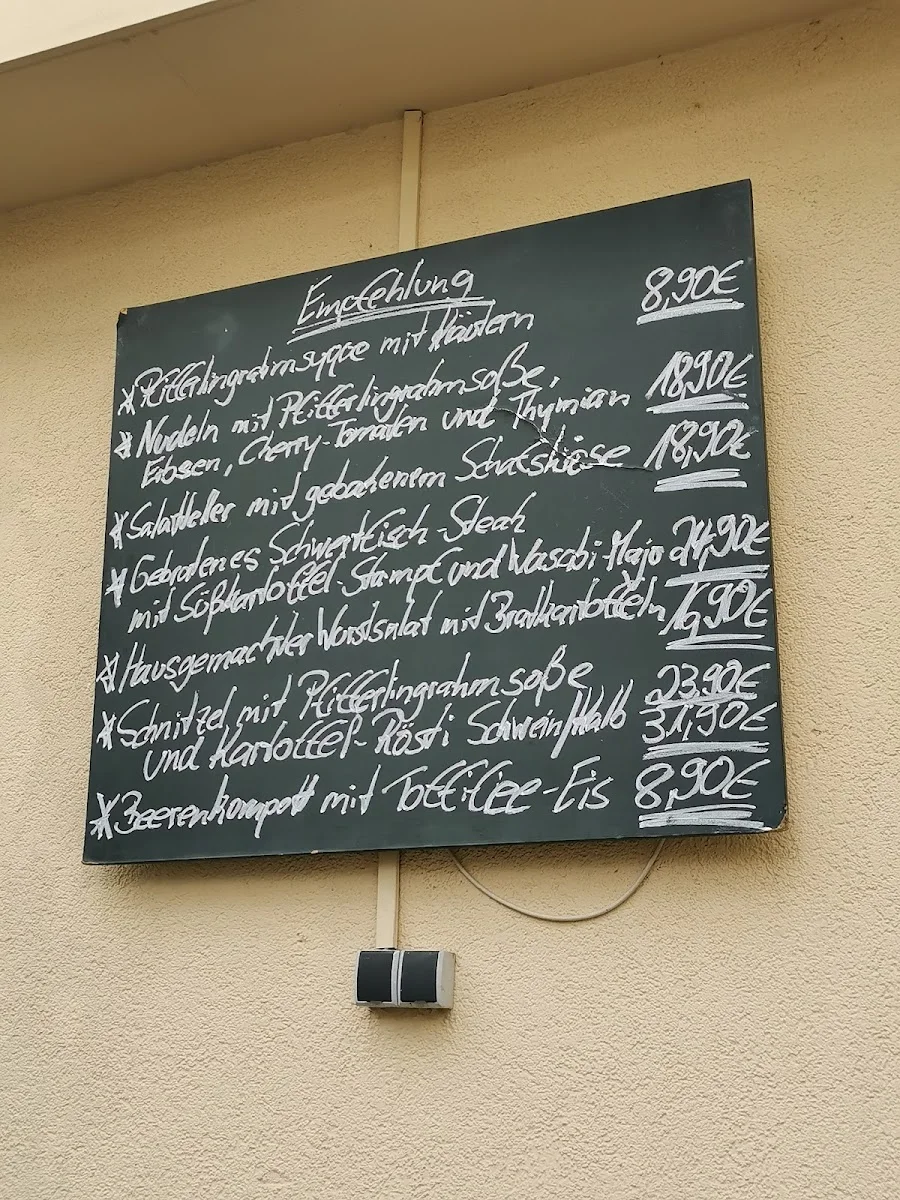 Empfehlung
* Pfifferlingrahmsuppe mit Kräutern 8,90€
* Nudeln mit Pfifferlingrahmsoße,
Erbsen, Cherry-Tomaten und Thymian 18,90€
* Salatteller mit gebackenem Schafskäse 18,90€
* Gebratenes Schwertfisch-Steak
mit Süßkartoffel-Stampf und Wasabi-Majo 24,90€
* Hausgemachter Wurstsalat mit Bratkartoffeln
* Schnitzel mit Pfifferlingrahmsoße 23,90€
und Kartoffel-Rösti Schwein/Kalb 31,90€
* Beerenkompott mit Toffifee-Eis 8,90€